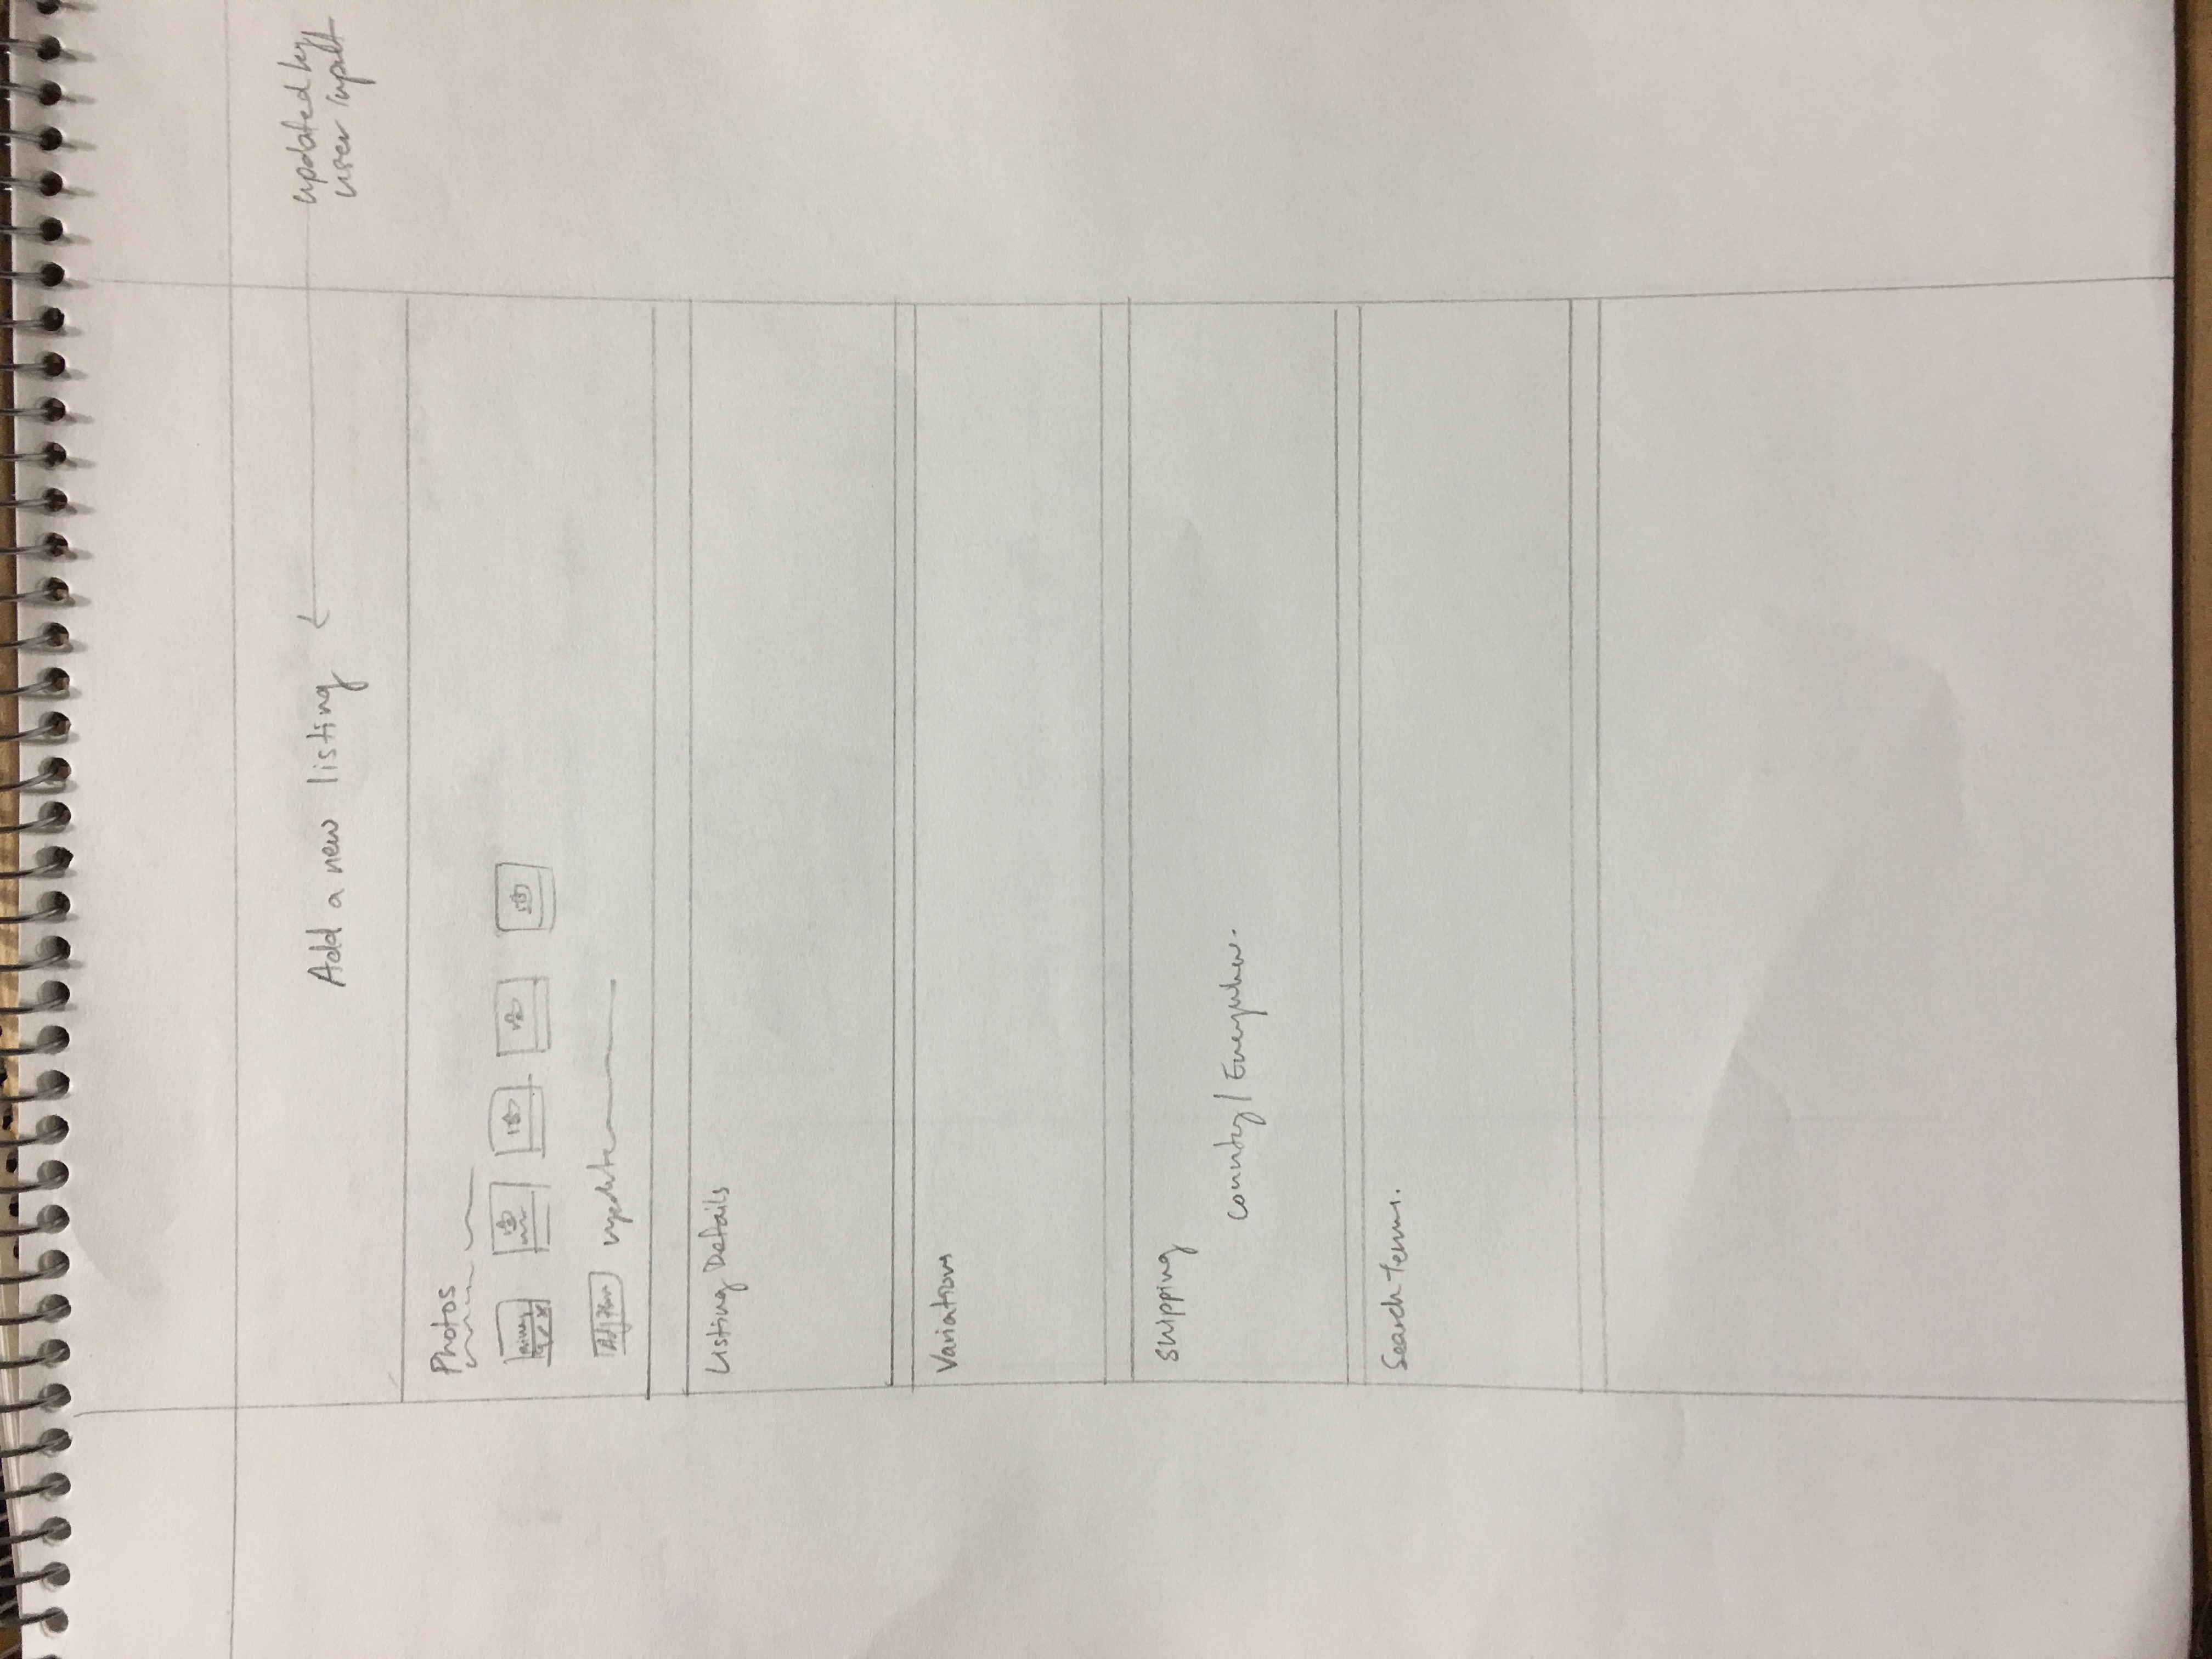 Add a new listing
updated by
user input
Photos
update
Listing Details
Variations
Shipping
Country / Everywhere.
Search terms.